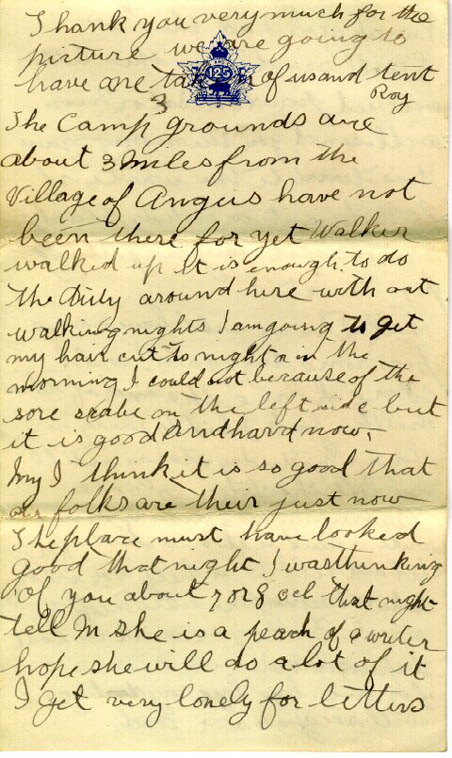 Thank you very much for the
picture we are going to
have one taken of us and tent
125
3 Roy
The Camp grounds are
about 3 miles from the
Village of Angus have not
been there for yet Walker
walked up It is enough to do
the Duty around here with out
walking nights I am going to get
my hair cut to night or in the
morning I could not because of the
sore scabe on the left side but
it is good and hard now.
My I think it is so good that
folks are their just now
The place must have looked
good that night I was thinking
of you about 7 or 8 ocl that night
tell M she is a peach of a writer
hope she will do a lot of it
I get very lonely for letters